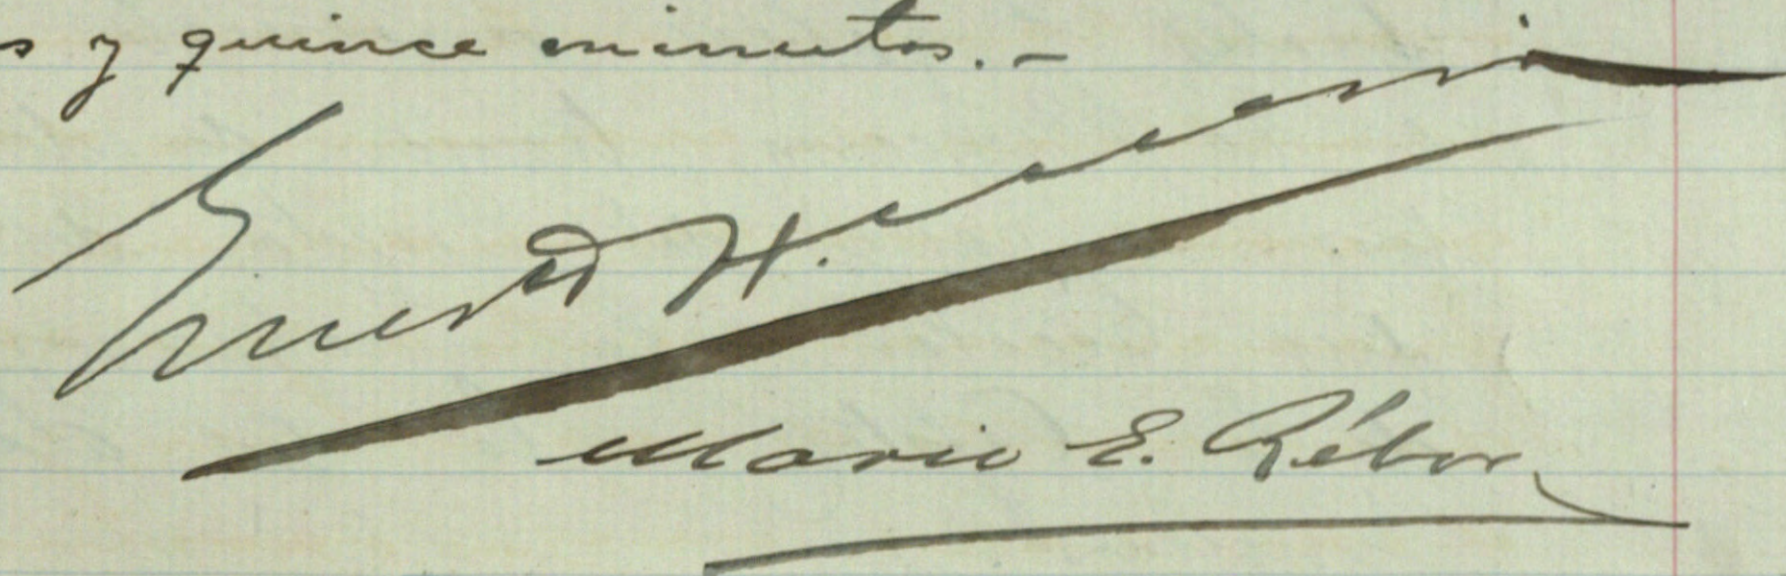 s y quince minutos.-
Ernesto H. Celesia
Mario E. Rébora